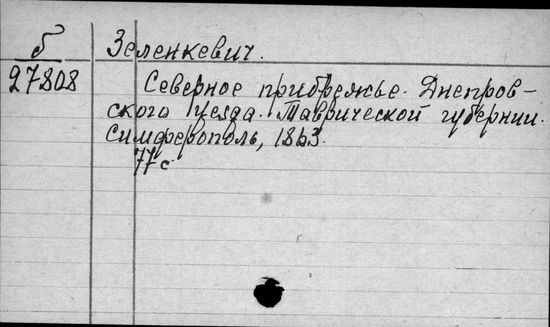 б
27808
Зеленкевич.
Северное прибрежье Днепров-
ского уезда Таврической губернии.
Симферополь, 1863.
77 с